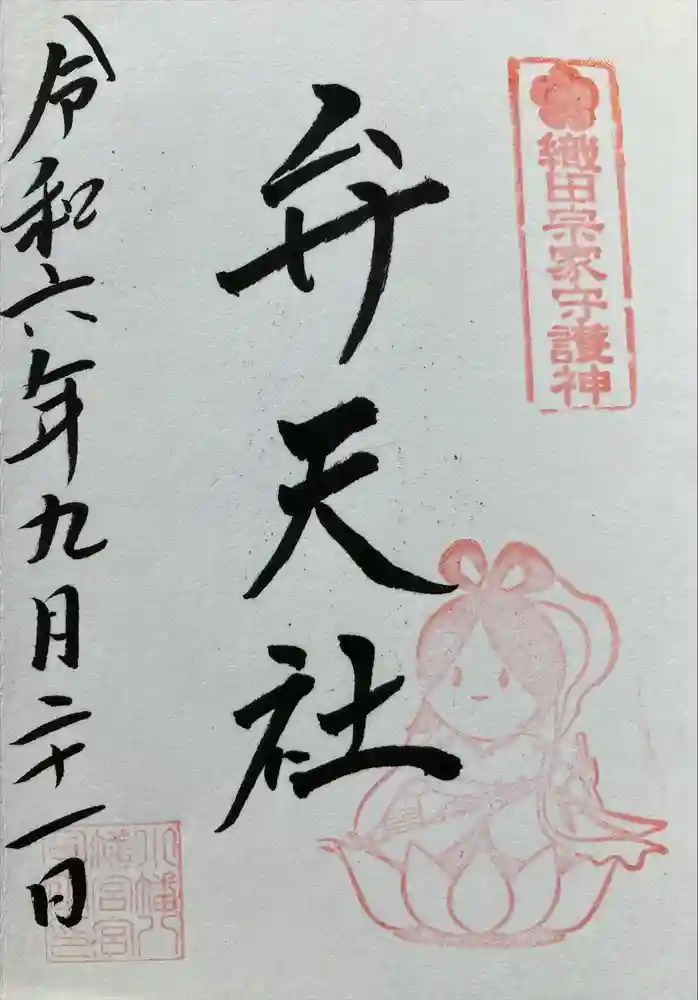 織田宗家守護神
弁天社
令和六年九月二十一日